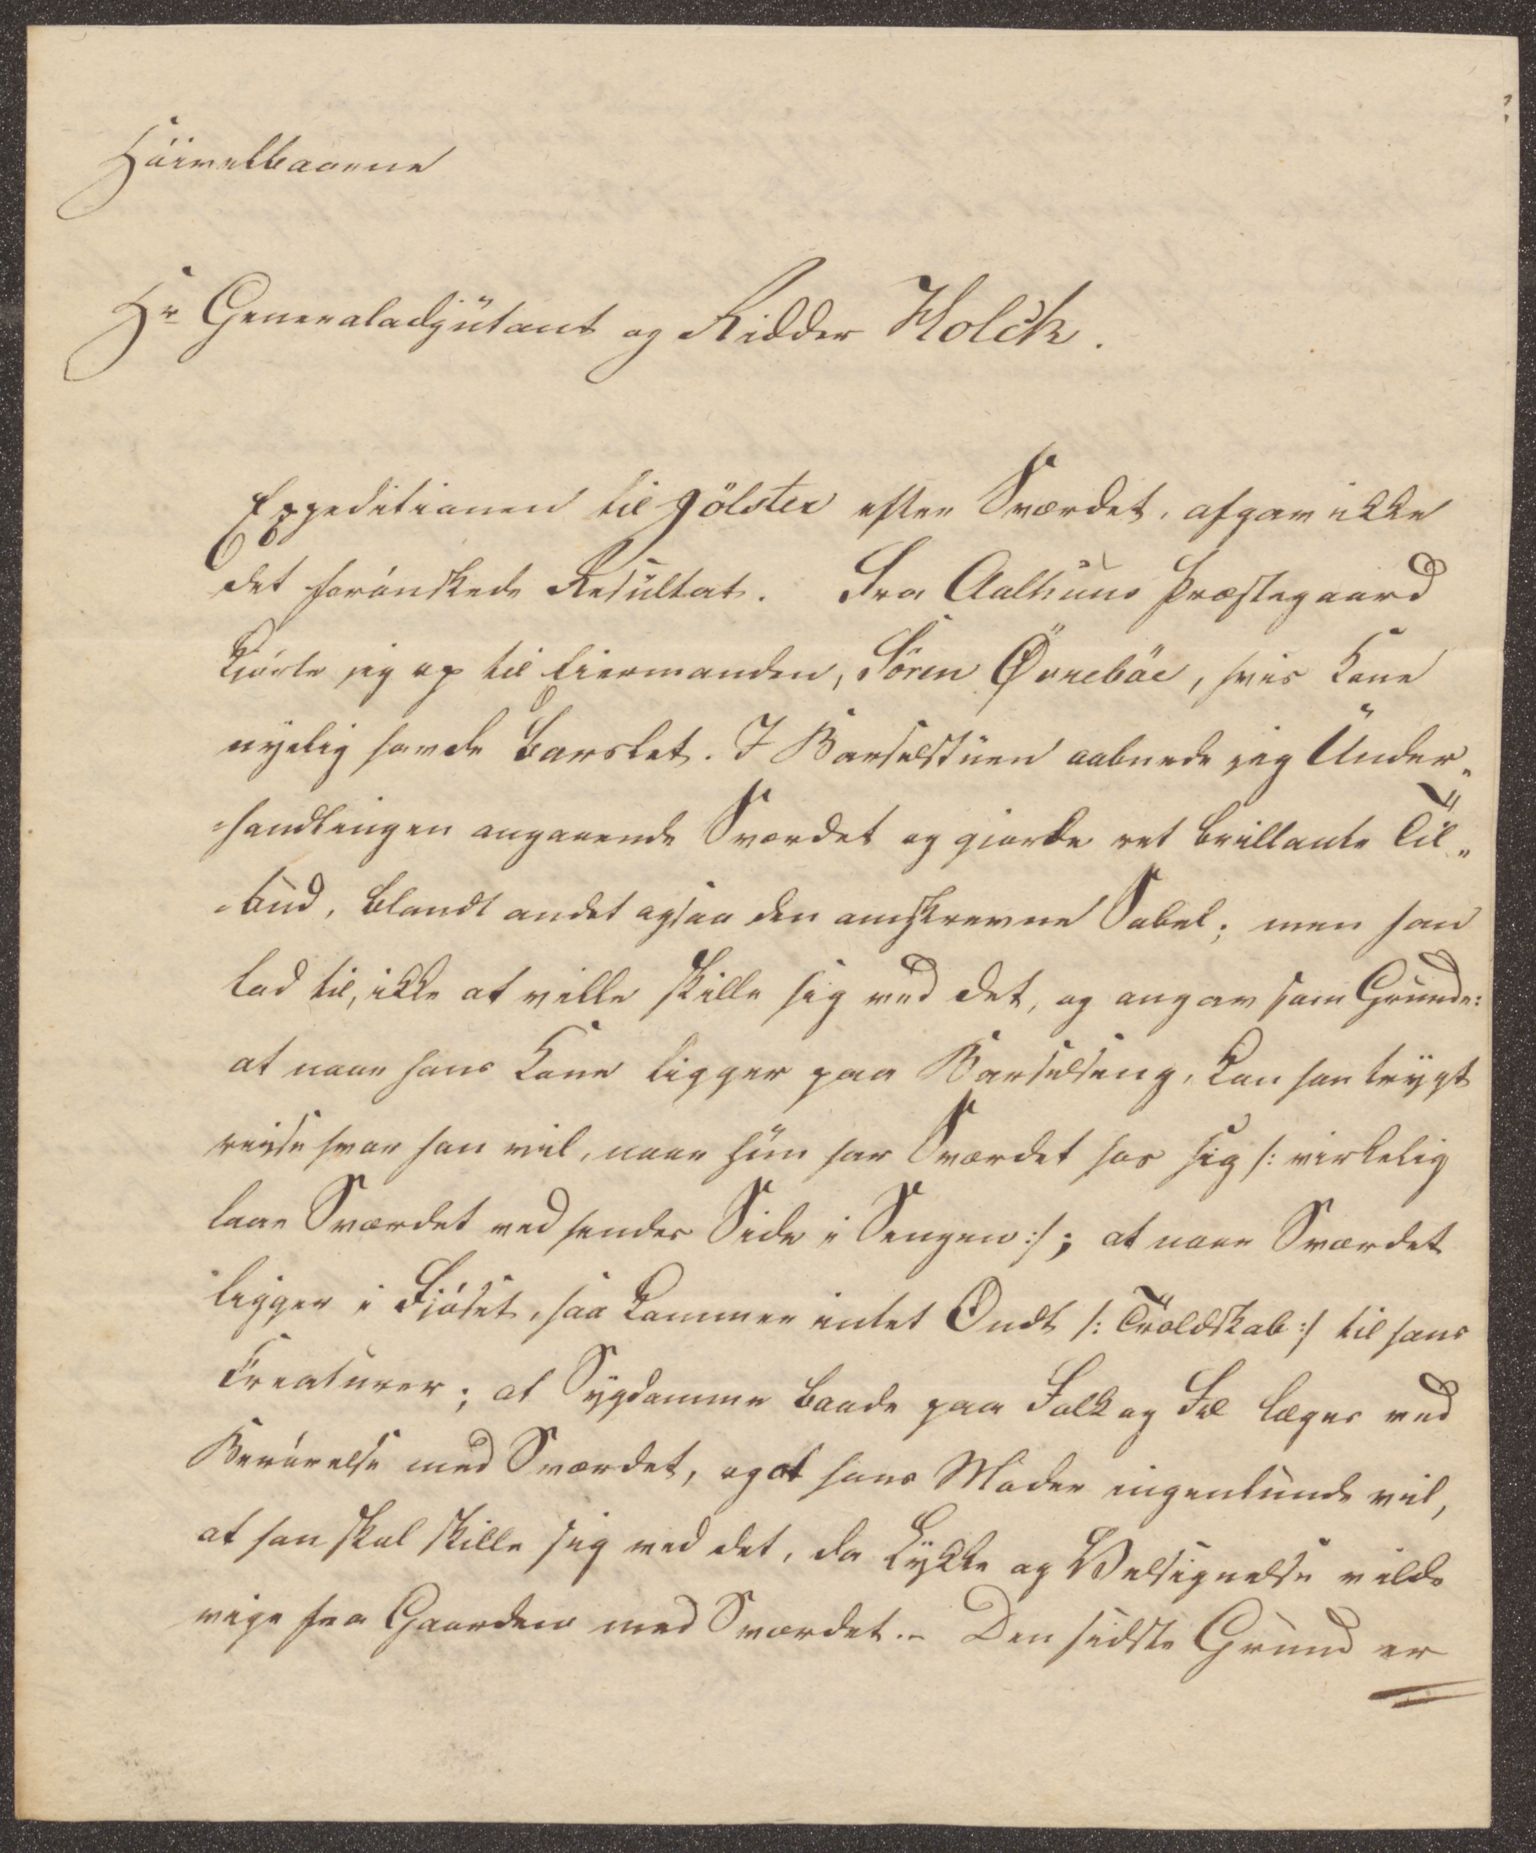 Höivelbaarne
Hr Generaladjütant og Ridder Holck.
Expeditionen til Jölster efter Sværdet, afgav ikke
det forönskede Resültat. Fra Aalhuus Præstegaard
kjörte jeg op til Eiermanden, Sören Övreböe, hvis Kone
nyelig havde barslet. I Barselstüen aabnede jeg Ünder„
„handlingen angaaende Sværdet og gjorde ret brillante Til„
„bud, blandt andet ogsaa den omskrevne Sabel; men han
lod til, ikke at ville skille sig ved det, og angav som Grunde:
at naar hans Kone ligger paa Barselseng, kan han trygt
reise hvor han vil, naar hün har Sværdet hos sig /: virkelig
laae Sværdet ved hendes Side i Sengen :/; at naar Sværdet
ligger i Fjöset, saa kommer intet Ondt /: Troldskab :/ til hans
Kreaturer; at Sygdomme baade paa Folk og Fæ læges ved
Berörelse med Sværdet, og at hans Moder ingenlunde vil,
at han skal skille sig ved det, da Lykke og Velsignelse vilde
vige fra Gaarden med Sværdet. – Den sidste Grund er